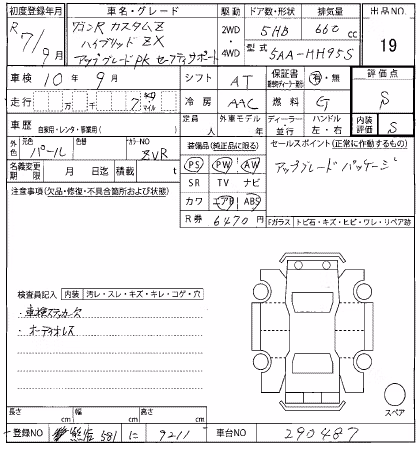 初度登録年月 車名・グレード 駆動 ドア数・形状 排気量 出品NO
R 7/9月 ワゴンR カスタムZ 2WD 5HB 660cc 19
ハイブリッド ZX ・ 型式
アップグレードPK セーフティサポート 4WD 5AA-MH95S
車検 10年 9月 シフト AT 保証書 有・無 評価点
走行 万 千 7 km マイル 冷房 AAC 燃料 G S
車歴 自家用・レンタ・事業用( ) 定員 人 外車モデル 年 ディーラー・並行 ハンドル 左・右 内装評価 S
外色 元色 パール 色替 カラーNO ZVR 装備品(純正品に限る) セールスポイント(正常に作動するもの)
名義変更期限 月 日迄 積載 t PS PW AW アップグレードパッケージ
注意事項(欠品・修復・不具合箇所および状態) SR TV ナビ
カワ エアB ABS
R券 6470円 Fガラス トビ石・キズ・ヒビ・ワレ・リペア跡
検査員記入 内装 汚レ・スレ・キズ・キレ・コゲ・穴
・車検ステッカー欠
・オーディオレス
長さ cm 幅 cm 高さ cm スペア
登録NO 581 に 9211 車台NO 290487